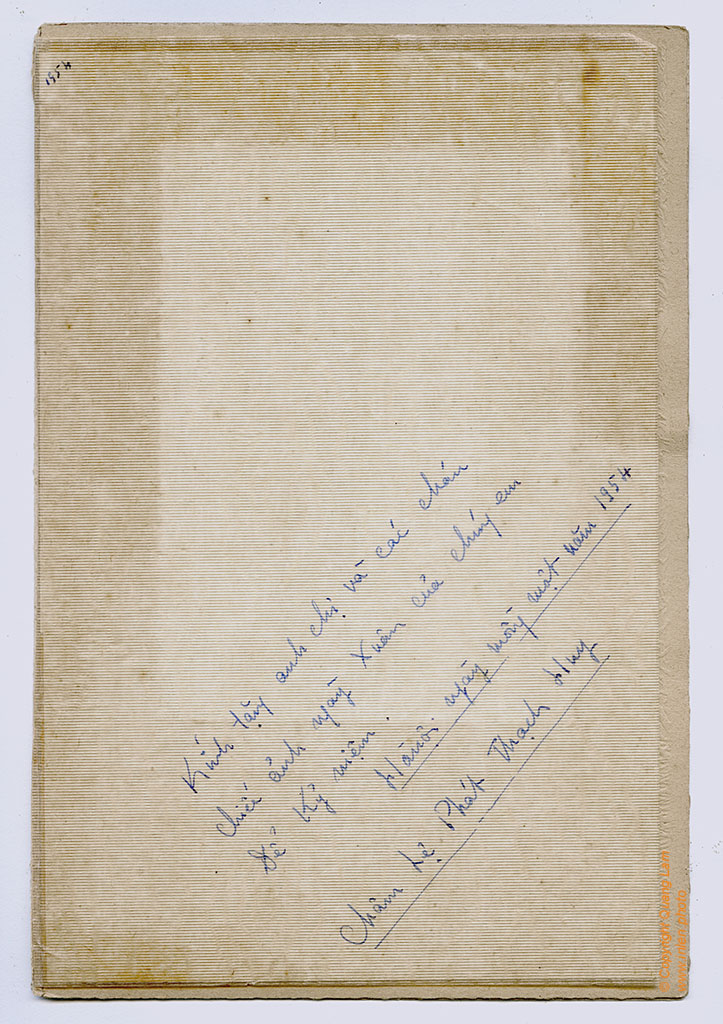 1954
Kính tặng anh chị và các cháu
chiếc ảnh ngày Xuân của chúng em
Để Kỷ niệm.
Hànôi ngày mồng một năm 1954
Châm Lệ Phát Thạch Huy
© Copyright Quang Lam